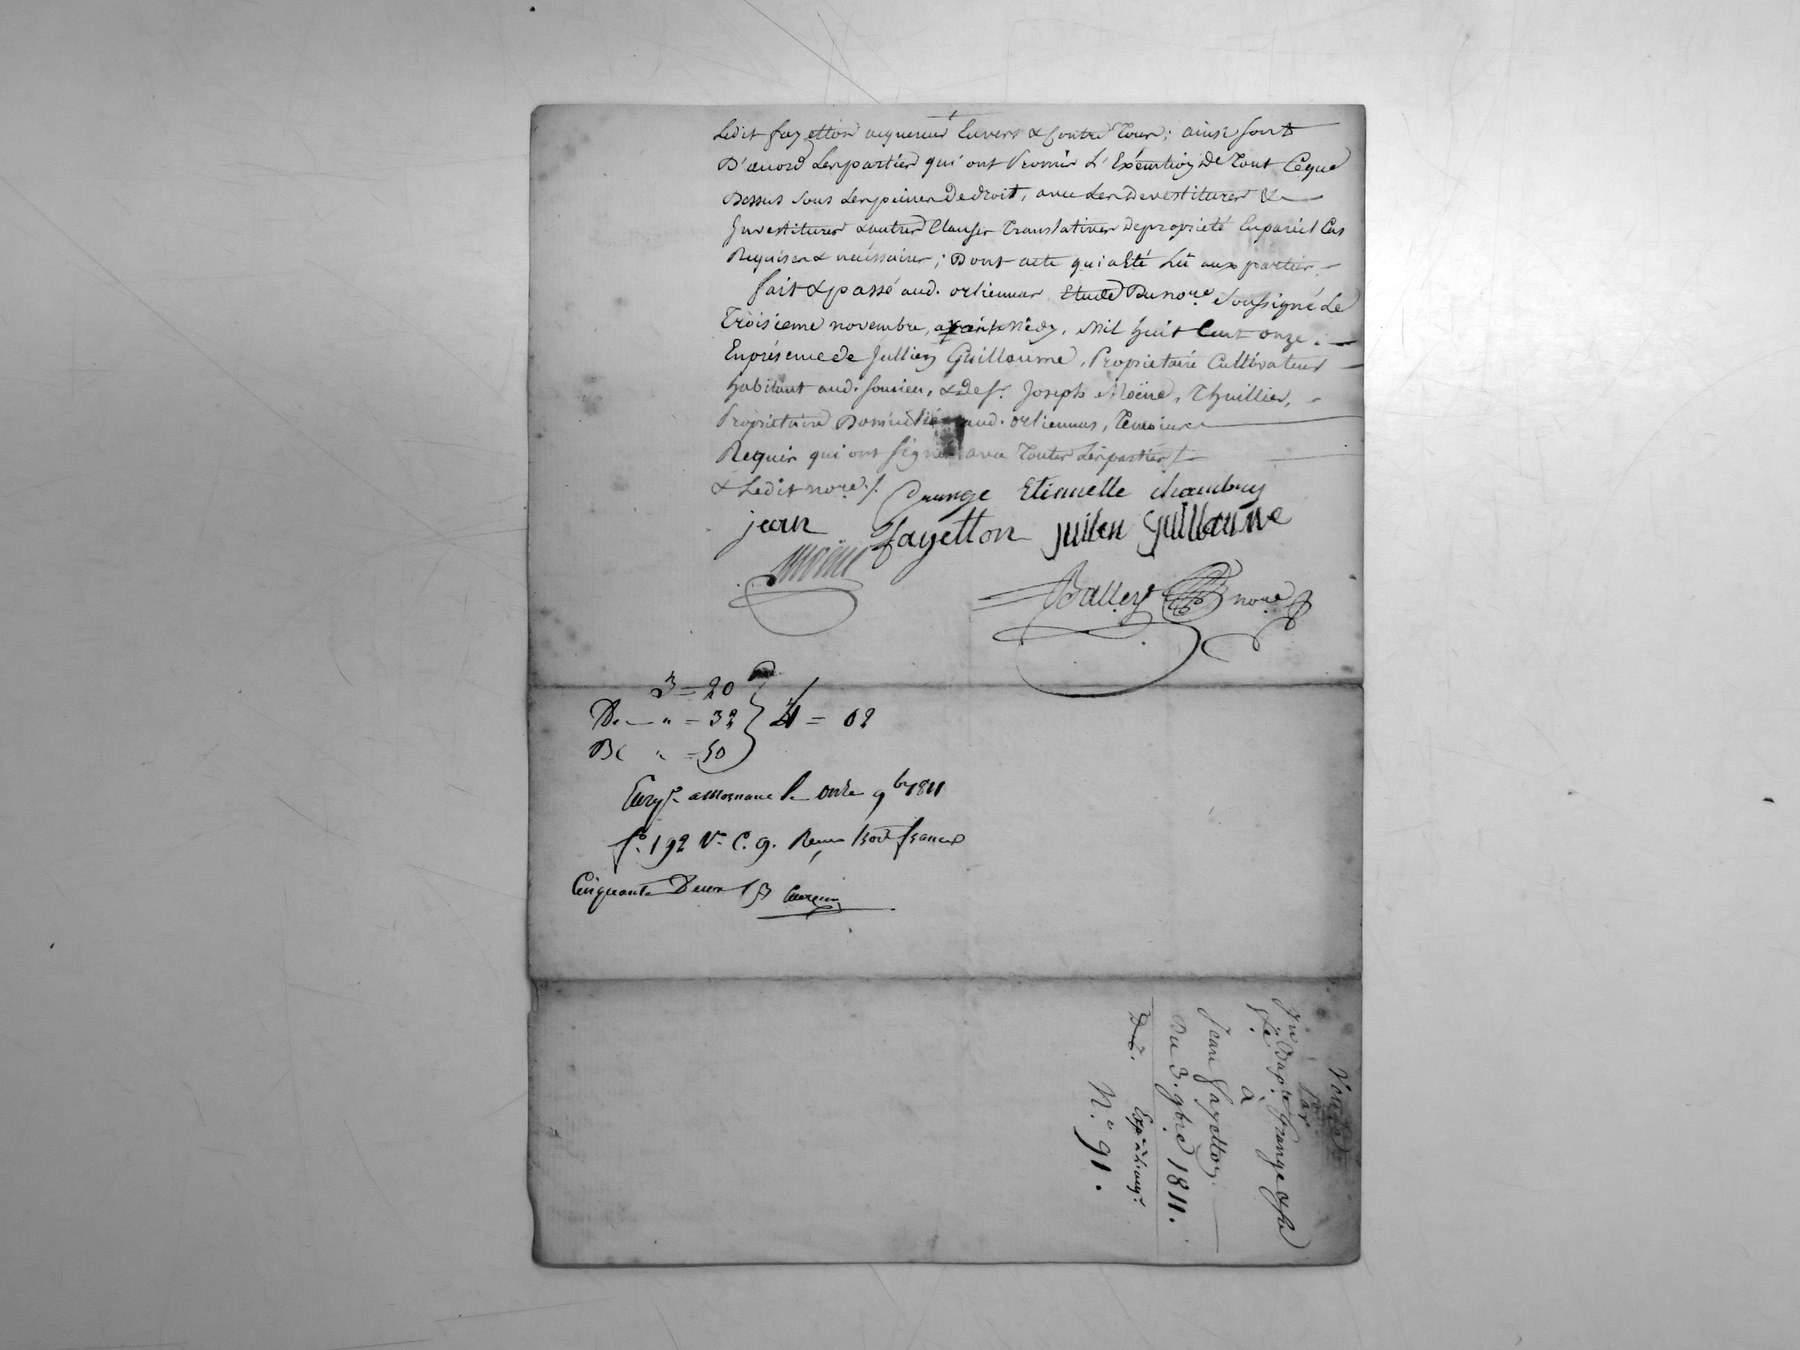 Ledit fayetton aquereur Envers & Contre Tous; ainsi sont
D'acord Les parties qui ont Promis L'Exécution De Tout Ceque
Dessus sous Les peines De droit, avec Les Devestitures &
Investitures & autres Clauses Translatives De propriété En pareil Cas
Requises & nécéssaires; Dont acte qui a Eté Lû aux parties.
fait & passé aud. orliennas Etude Du nore. soussigné Le
Troisieme novembre, avant Midy, Mil huit Cent onze.
En présence de Jullien Guillaume, Propriétaire Cultivateur
habitant aud. soucieu, & de sr. Joseph Moine, Thuillier,
Propriétaire Domicilié aud. orliennas, Temoins
Requis qui ont signé avec Toutes Les parties
& Ledit nore./.
Grange Etiennette chambry
jean fayetton julien guillaume
Moine
Balley nore
3 = 20
D. " = 32 } 4 = 02
" = 50
Enrgt. a Mornant le onze 9bre 1811
fo. 192 Vo. C. 9. Reçu trois francs
Cinquante Deux
Vente
Par
Jn. Bapte. Grange & sa
fe.
à
Jean fayetton.
Du 3. 9bre 1811.
N.° 91.